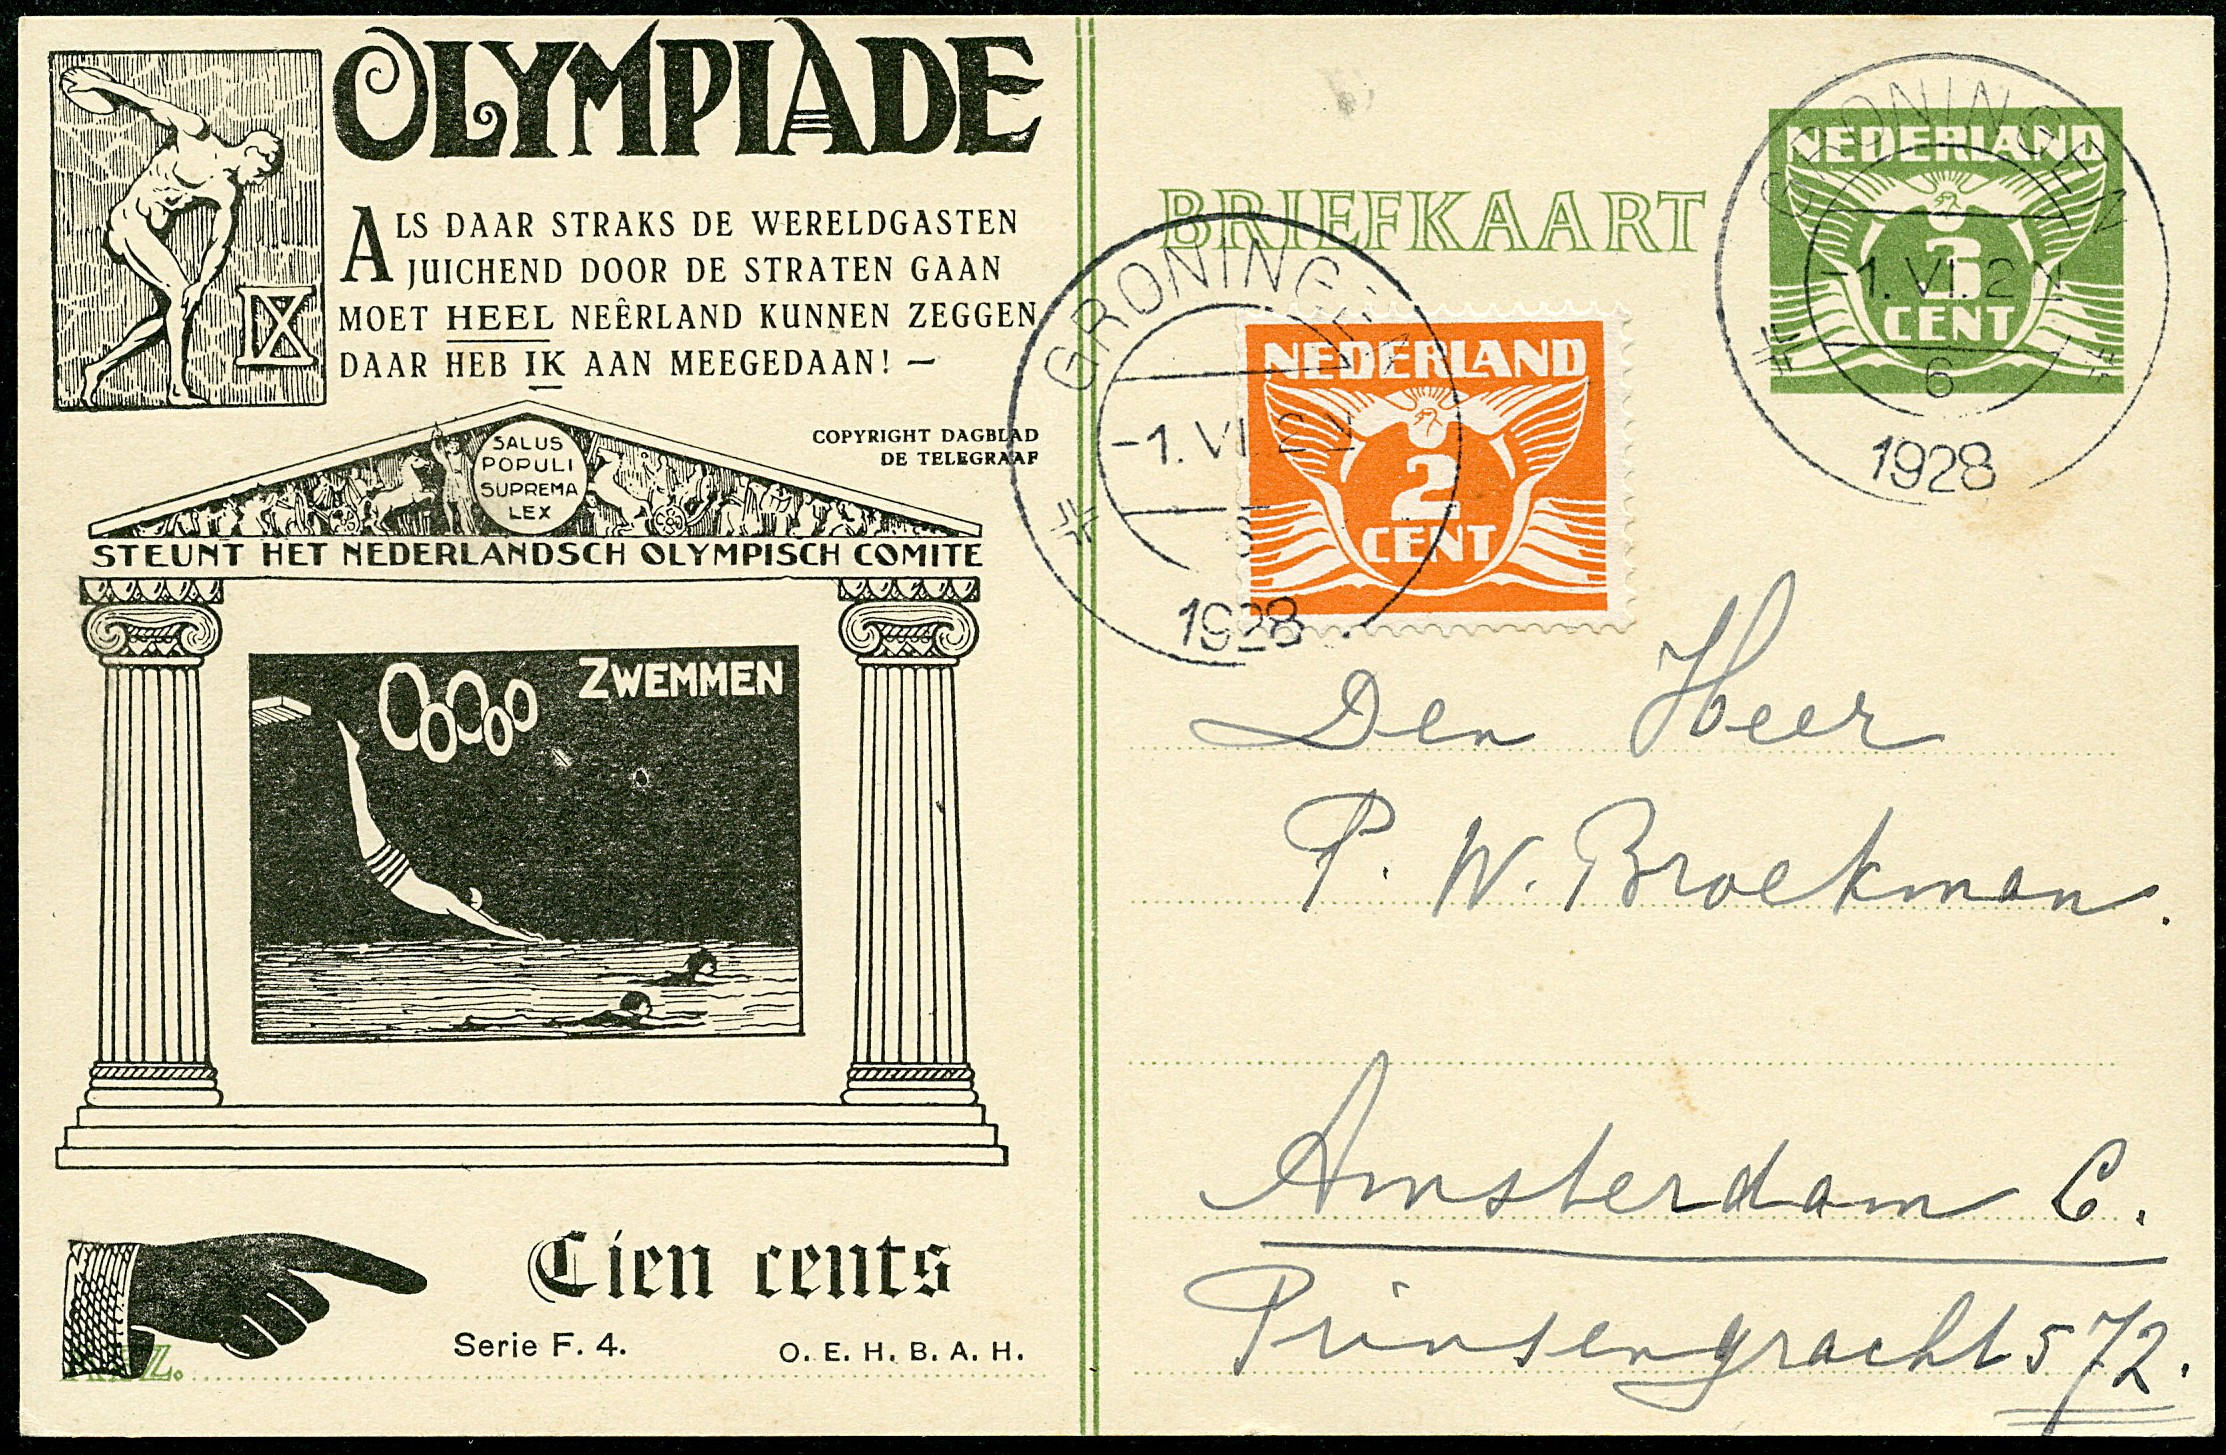 OLYMPIADE
IX
ALS DAAR STRAKS DE WERELDGASTEN
JUICHEND DOOR DE STRATEN GAAN
MOET HEEL NEÊRLAND KUNNEN ZEGGEN
DAAR HEB IK AAN MEEGEDAAN! —
COPYRIGHT DAGBLAD
DE TELEGRAAF
SALUS
POPULI
SUPREMA
LEX
STEUNT HET NEDERLANDSCH OLYMPISCH COMITE
ZWEMMEN
Tien cents
Serie F. 4.
O. E. H. B. A. H.
Z.
BRIEFKAART
NEDERLAND
3
CENT
GRONINGEN
-1.VI.2N
6
1928
NEDERLAND
2
CENT
GRONINGEN
-1.VI.2N
1928
Den Heer
P. W. Broekman.
Amsterdam C.
Prinsengracht 572.